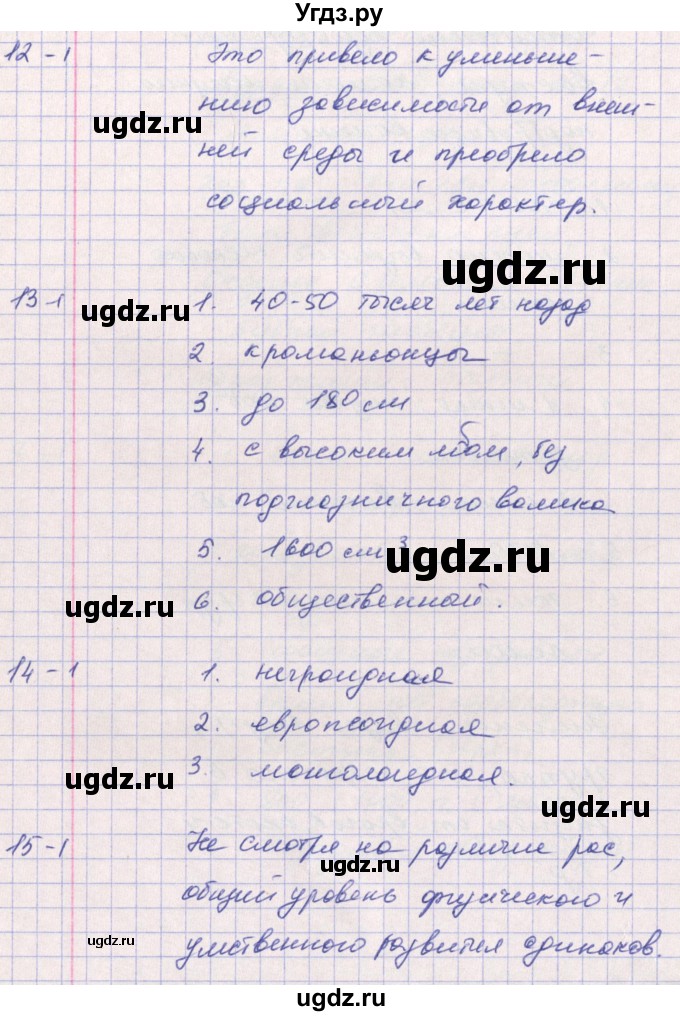 Угдз.ру
12-1 Это привело к уменьше-
нию зависимости от внеш-
ugdz.ru
ней среды и преобрело
социальный характер.
ugdz.ru
13-1 1. 40-50 тысяч лет назад
ugdz.ru
2. кроманьонцы
3. до 180 см
4. с высоким лбом, без
подглазничного валика
5. 1600 см³
ugdz.ru
ugdz.ru
6. общественной.
14-1 1. негроидная
2. европеоидная
ugdz.ru
3. монголоидная.
ugdz.ru
15-1 Не смотря на различие рас,
ugdz.ru
общий уровень физического и
ugdz.ru
умственного развития одинаков.
ugdz.ru